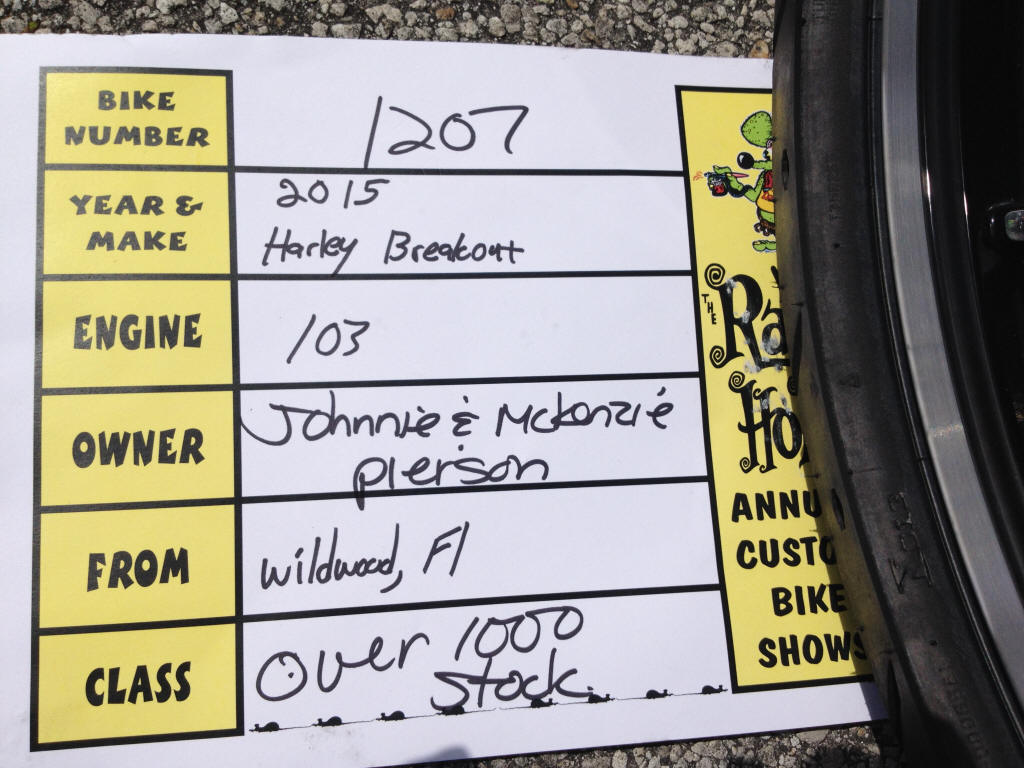 BIKE
NUMBER
1207
YEAR &
MAKE
2015
Harley Breakout
ENGINE
103
OWNER
Johnnie & Mckenzie
pierson
FROM
Wildwood, Fl
CLASS
Over 1000
Stock
THE
Ra
Ho
ANNU
CUSTO
BIKE
SHOWS